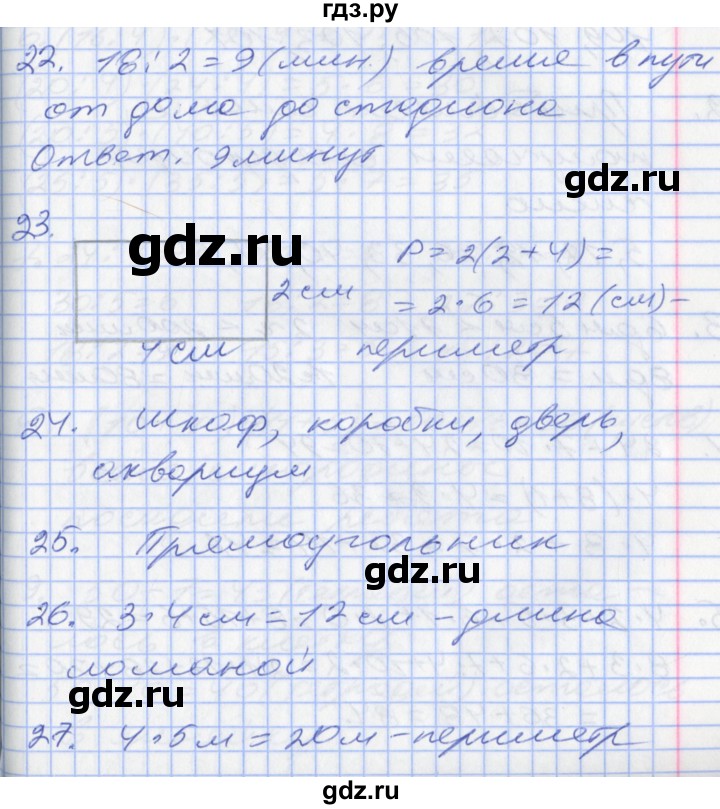 гдз.ру
22. 18 : 2 = 9 (мин.) время в пути
от дома до стадиона
Ответ: 9 минут
gdz.ru
23.
gdz.ru
2 см
4 см
P = 2(2+4) =
= 2·6 = 12 (см) –
периметр
gdz.ru
24. Шкаф, коробки, дверь,
аквариум
25. Прямоугольник
gdz.ru
26. 3·4 см = 12 см – длина
ломаной
gdz.ru
27. 4·5 м = 20 м – периметр
gdz.ru
gdz.ru